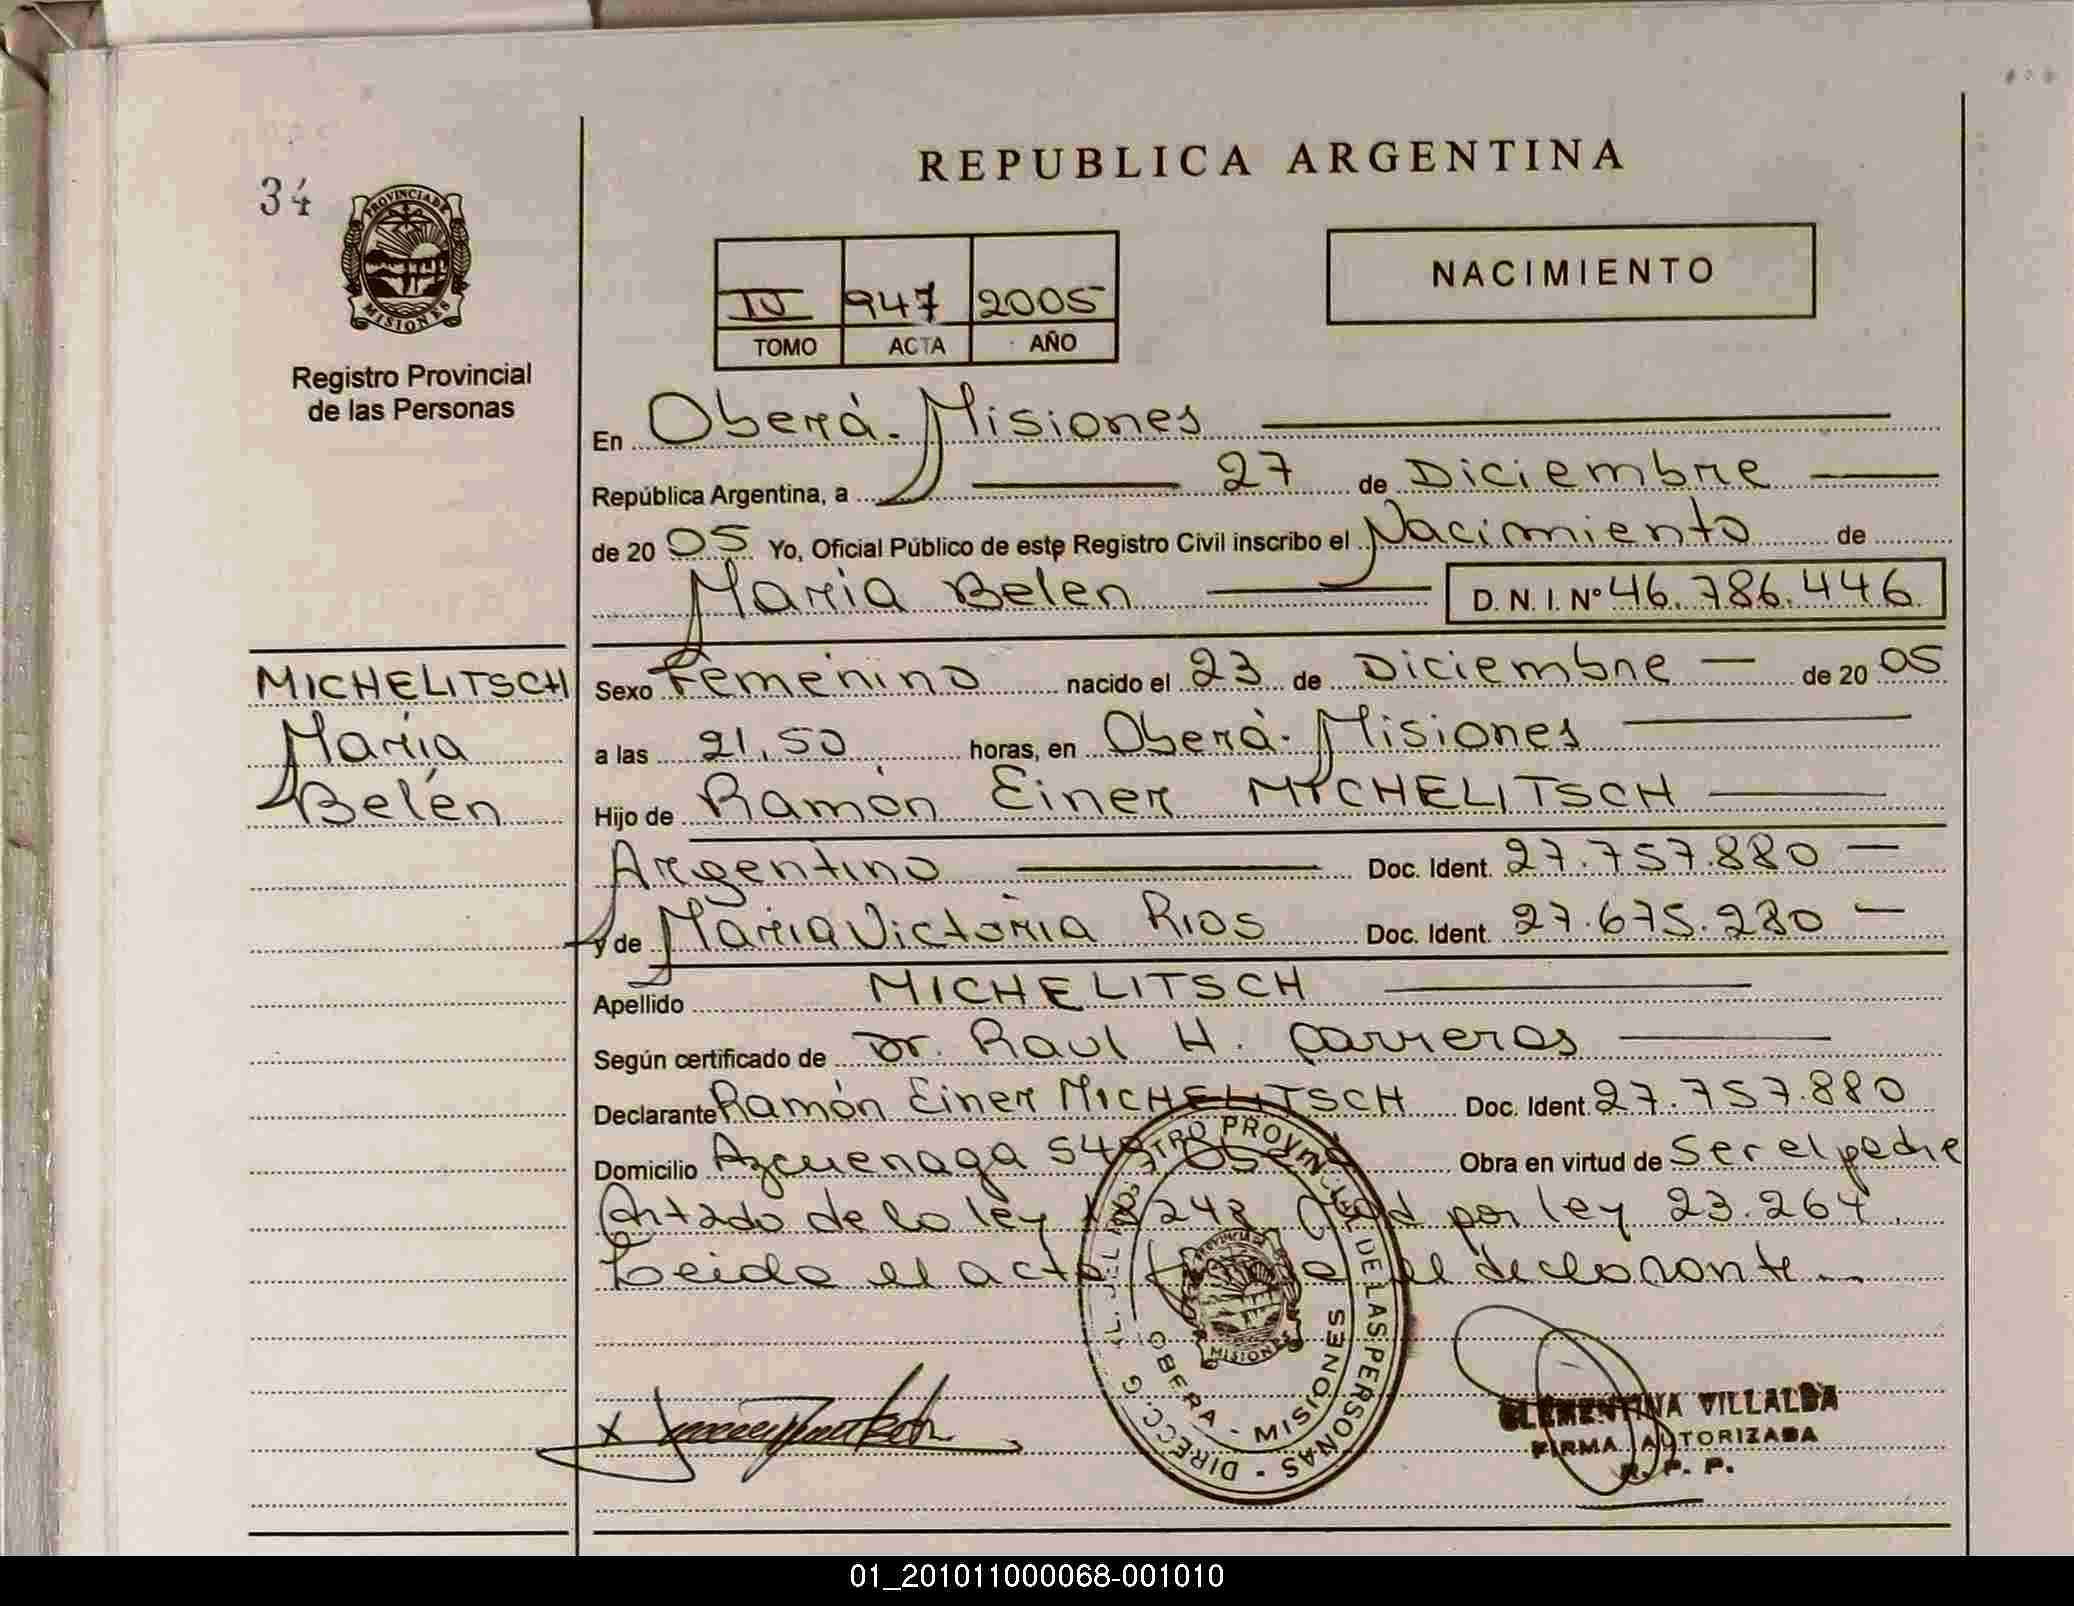 REPUBLICA ARGENTINA
34
PROVINCIA DE
MISIONES
Registro Provincial
de las Personas
IV 947 2005
TOMO ACTA AÑO
NACIMIENTO
En Oberá - Misiones
República Argentina, a 27 de Diciembre
de 20 05 Yo, Oficial Público de este Registro Civil inscribo el Nacimiento de
Maria Belen D. N. I. Nº 46.786.446
MICHELITSCH
María
Belén
Sexo Femenino nacido el 23 de Diciembre de 20 05
a las 21,50 horas, en Oberá - Misiones
Hijo de Ramón Einer MICHELITSCH
Argentino Doc. Ident. 27.757.880
y de Maria Victoria Rios Doc. Ident. 27.675.280
Apellido MICHELITSCH
Según certificado de Dr. Raul H. Carreras
Declarante Ramón Einer MICHELITSCH Doc. Ident. 27.757.880
Domicilio Azcuenaga Obra en virtud de Ser el padre
de la ley por ley 23.264.
Leida el acta el declarante
DIRECC. PROVINCIAL DE LAS PERSONAS
PROVINCIA DE
MISIONES
OBERA - MISIONES
CLEMENTINA VILLALBA
FIRMA AUTORIZADA
R. P. P.
01_201011000068-001010